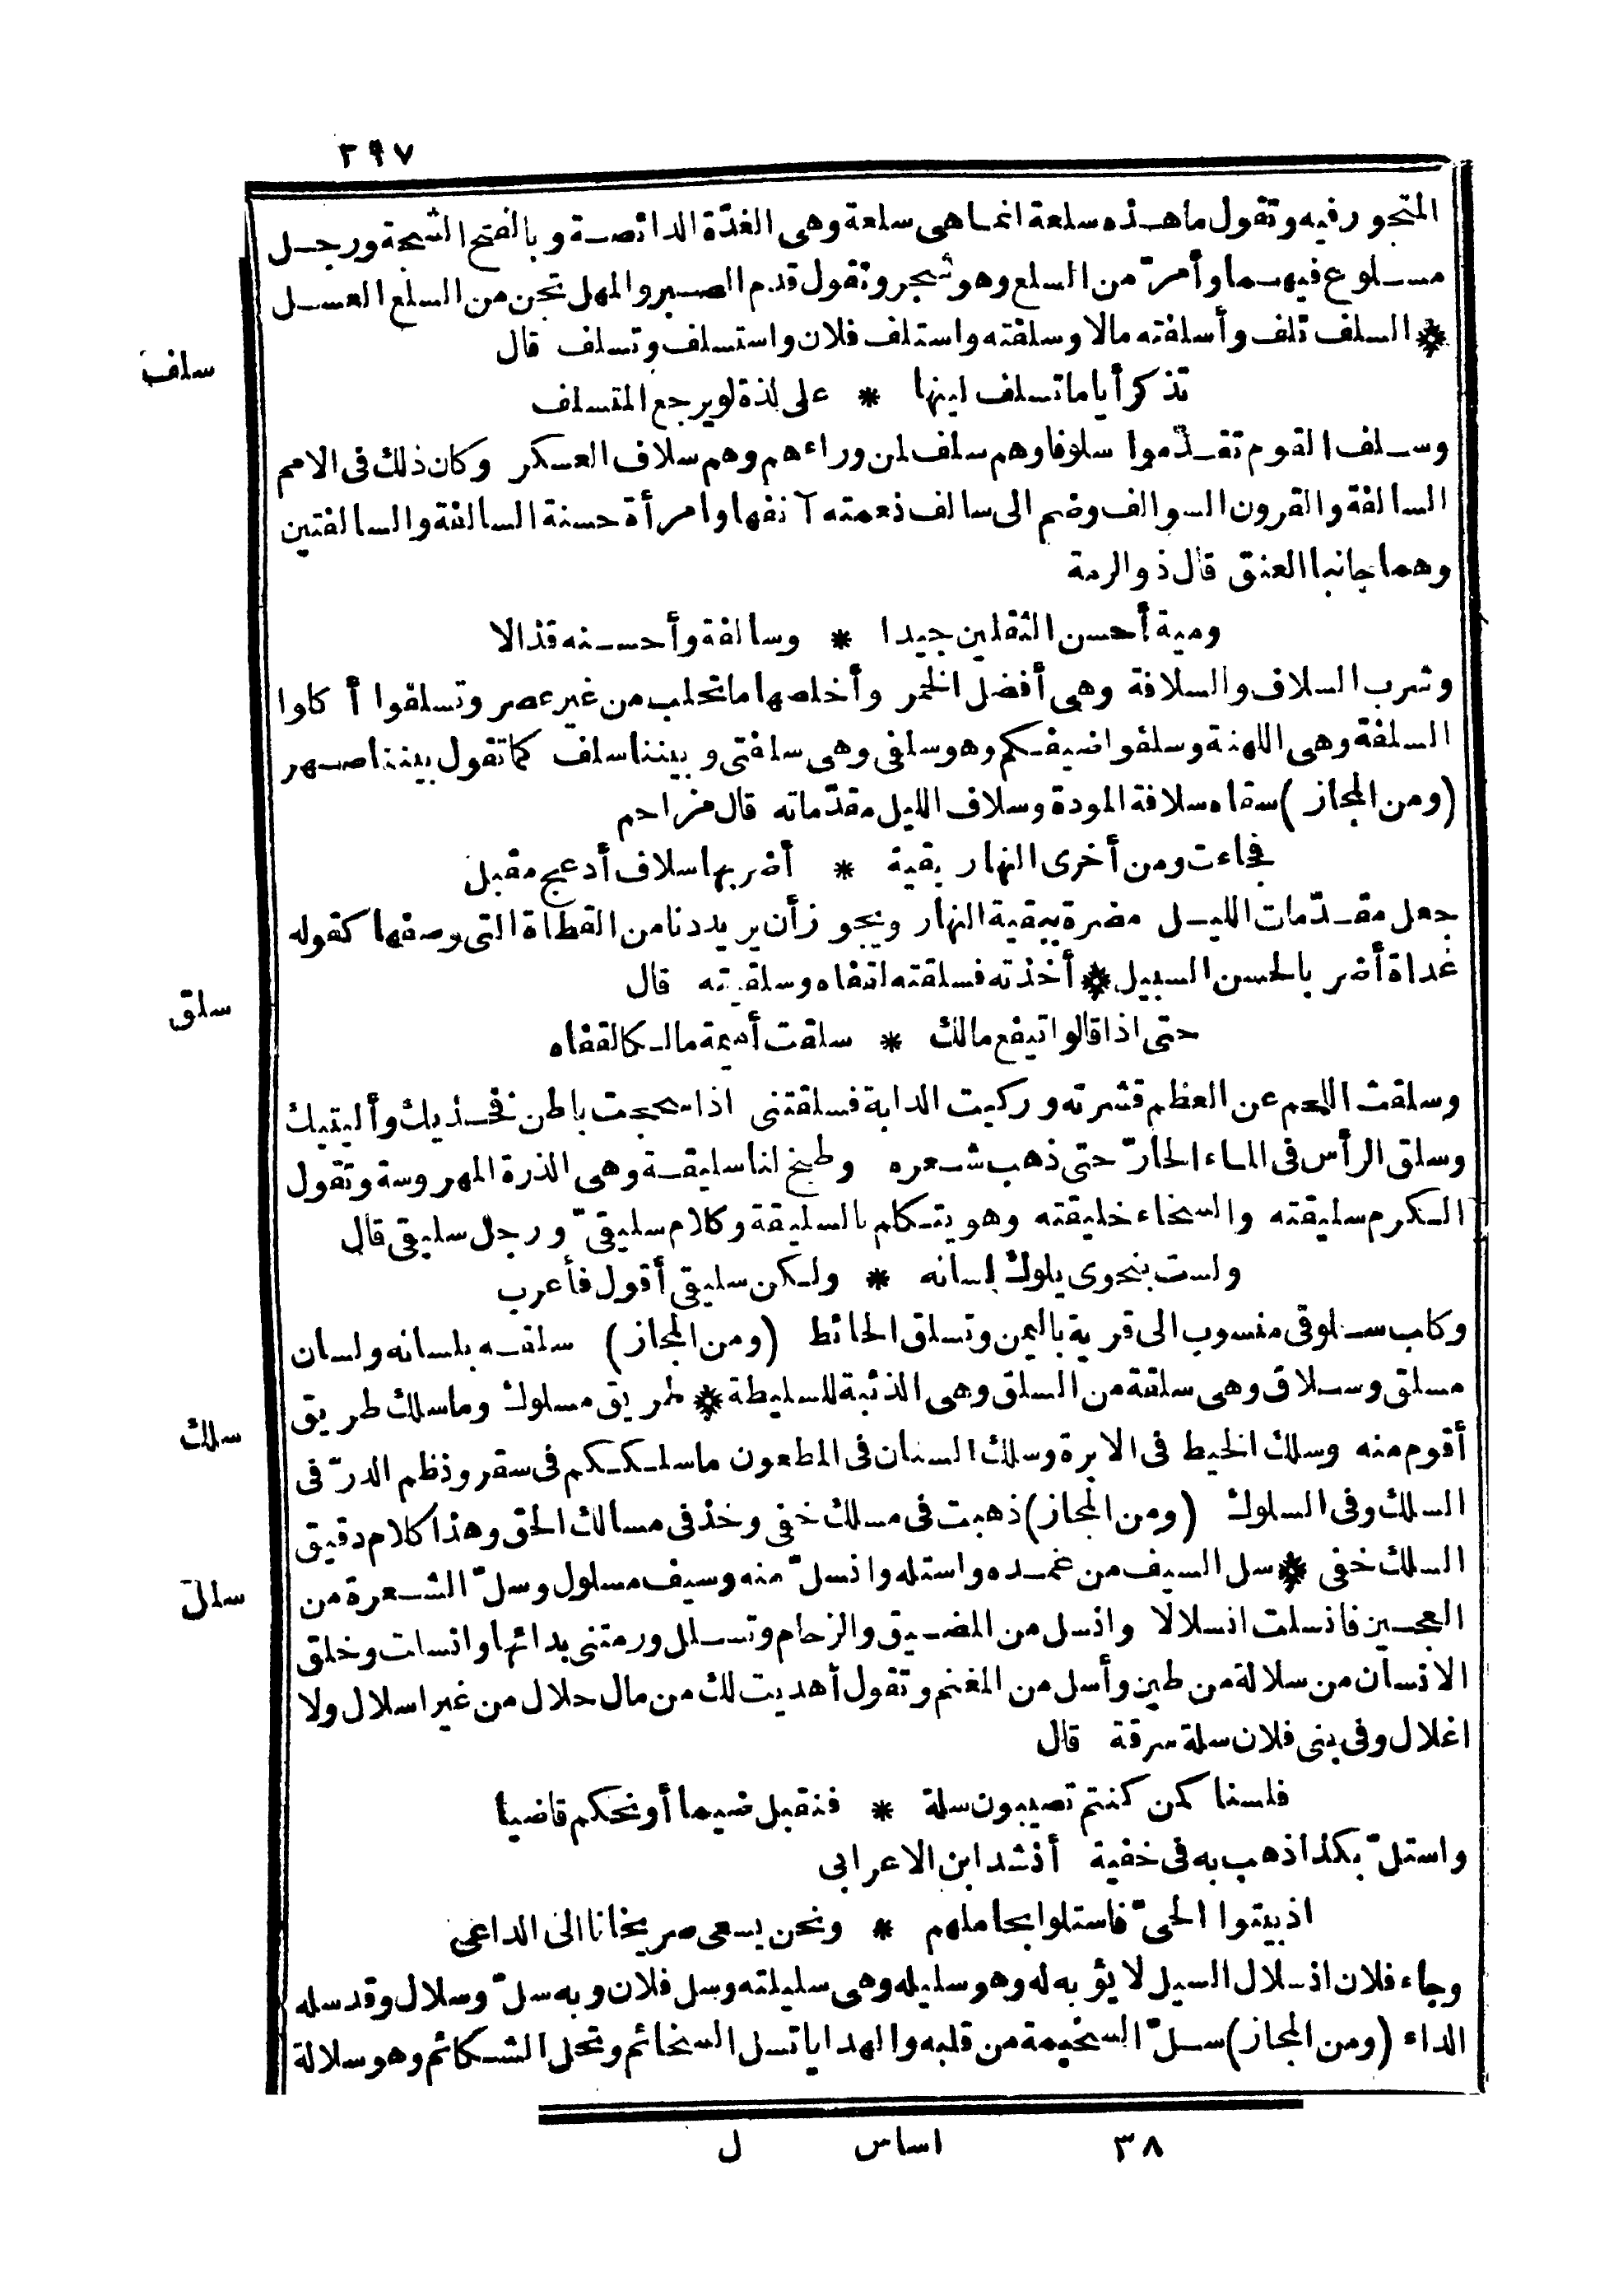 ٢٩٧
المتجور فيه وتقول ما هذه سلعة انما هى سلعة وهى الغدّة الدائصة وبالفتح الشجة ورجل
مسلوع فيهما وأمرّ من السلع وهو شجر وتقول قدم الصبر والمهل تجن من السلع العسل
* السلف تلف وأسلفته مالا وسلفته واستلف فلان واستسلف وتسلف قال
سلف
تذكر أياما تسلف لينها * على لذة لو يرجع المتسلف
وسلف القوم تقدّموا سلوفا وهم سلف لمن وراءهم وهم سلاف العسكر وكان ذلك فى الامم
السالفة والقرون السوالف وضم الى سالف نعمته آنفها وامرأة حسنة السالفة والسالفتين
وهما جانبا العنق قال ذو الرمة
ومية أحسن الثقلين جيدا * وسالفة وأحسنه قذالا
وشرب السلاف والسلافة وهى أفضل الخمر وأخلصها ما تحلب من غير عصر وتسلفوا أكلوا
السلفة وهى اللهنة وسلفوا ضيفكم وهو سلفى وهى سلفتى وبيننا سلف كما تقول بيننا صهر
(ومن المجاز) سقاه سلافة المودة وسلاف الليل مقدّماته قال مزاحم
فجاءت ومن أخرى النهار بقية * أضر بها سلاف أدعج مقبل
جعل مقدّمات الليل مضرة ببقية النهار ويجوز أن يريد دنا من القطاة التى وصفها كقوله
غداة أضر بالحسن السبيل * أخذته فسلقته لقفاه وسلقيته قال
سلق
حتى اذا قالوا تيفع مالك * سلقت أميمة مالكا لقفاه
وسلقت اللحم عن العظم قشرته وركبت الدابة فسلقتنى اذا سحجت باطن فخذيك وأليتيك
وسلق الرأس فى الماء الحارّ حتى ذهب شعره وطبخ لنا سليقة وهى الذرة المهروسة وتقول
الكرم سليقته والسخاء خليقته وهو يتكلم بالسليقة وكلام سليقىّ ورجل سليقى قال
ولست بنحوى يلوك لسانه * ولكن سليقى أقول فأعرب
وكلب سلوقى منسوب الى قرية باليمن وتسلق الحائط (ومن المجاز) سلقه بلسانه ولسان
مسلق وسلاق وهى سلقة من السلق وهى الذئبة للسليطة * طريق مسلوك وما سلك طريق
سلك
أقوم منه وسلك الخيط فى الابرة وسلك السنان فى المطعون ما سلككم فى سقر ونظم الدرّ فى
السلك وفى السلوك (ومن المجاز) ذهبت فى مسلك خفى وخذ فى مسالك الحق وهذا كلام دقيق
السلك خفى * سل السيف من غمده واستله وانسلّ منه وسيف مسلول وسلّ الشعرة من
سلل
العجين فانسلت انسلالا وانسل من المضيق والزحام وتسلل ورمتنى بدائها وانسلت وخلق
الانسان من سلالة من طين وأسل من المغنم وتقول أهديت لك من مال حلال من غير اسلال ولا
اغلال وفى بنى فلان سلة سرقة قال
فلسنا كمن كنتم تصيبون سلة * فنقبل ضيما أو نحكم قاضيا
واستلّ بكذا ذهب به فى خفية أنشد ابن الاعرابى
اذ بيتوا الحىّ فاستلوا بجاملهم * ونحن يسعى صريخانا الى الداعى
وجاء فلان انسلال السيل لا يؤبه له وهو سليله وهى سليلته وسل فلان وبه سلّ وسلال وقد سله
الداء (ومن المجاز) سلّ السخيمة من قلبه والهدايا تسل السخائم وتحل الشكائم وهو سلالة
٣٨ اساس ل